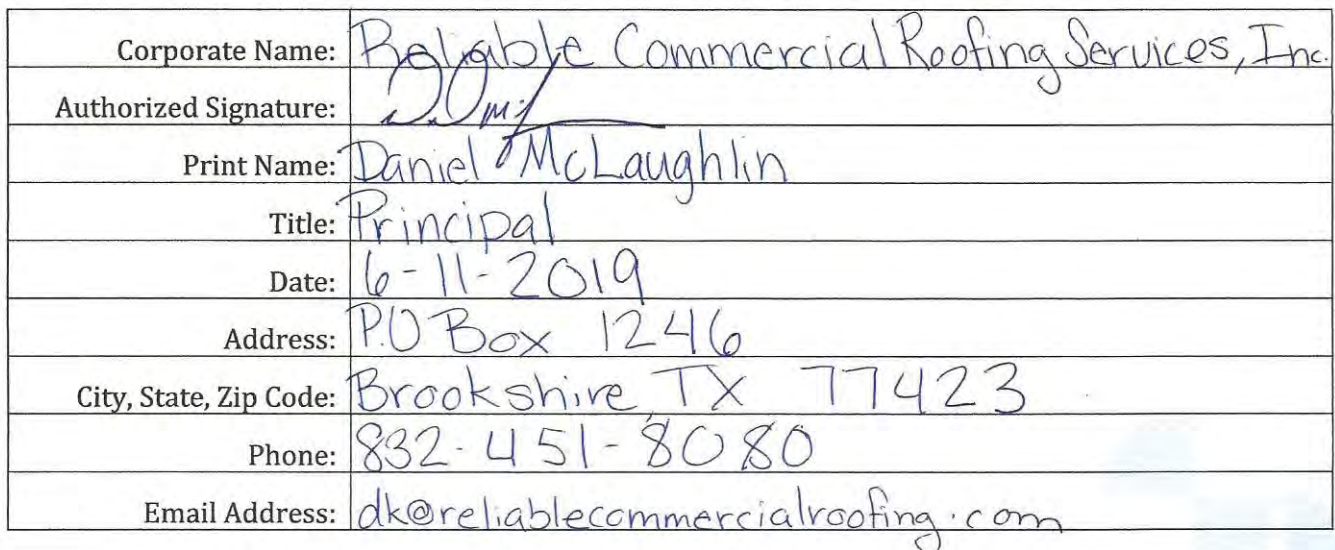 Corporate Name: Reliable Commercial Roofing Services, Inc.
Authorized Signature:
Print Name: Daniel McLaughlin
Title: Principal
Date: 6-11-2019
Address: P.O Box 1246
City, State, Zip Code: Brookshire, TX 77423
Phone: 832-451-8080
Email Address: dk@reliablecommercialroofing.com